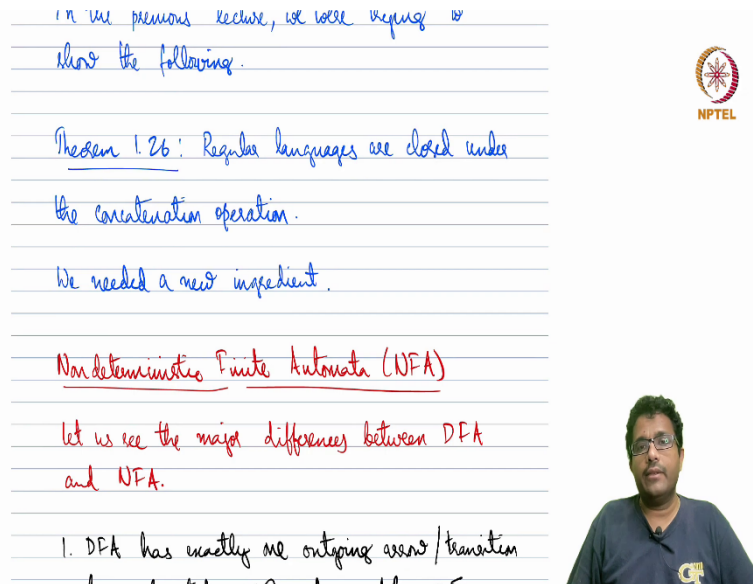 In the previous lecture, we were trying to
show the following.
NPTEL
Theorem 1.26: Regular languages are closed under
the concatenation operation.
We needed a new ingredient.
Nondeterministic Finite Automata (NFA)
Let us see the major differences between DFA
and NFA.
1. DFA has exactly one outgoing arrow/transition
GT